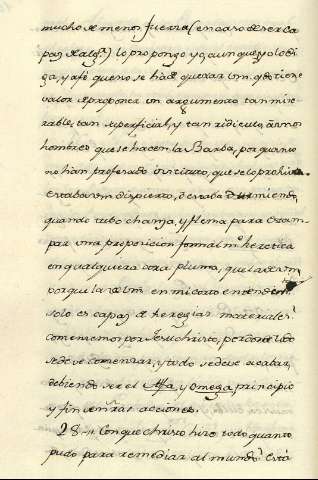 mucho de menos fuerza (en caso de ser ca
paz de alg.ª) lo propongo yo, aunque yo lo di
ga, y a fé que no se ha de quexar Vm. q.e tiene
valor de proponer un argumento tan mise
rable, tan superficial, y tan ridiculo, á unos
hombres que se hacen la Barba, por quanto
no han profesado instituto, que se lo prohiva.
Estaba Vm dispierto, ó estaba durmiendo,
quando tubo chanza, y flema para estam
par una proposicion formalm.te heretica
en qualquiera otra pluma, que la de Vm
porque la de Vm en mi corto entender
solo es capaz de heregias materiales?
Comenzemos por Jesu Christo, por donde todo
se deve comenzar, y todo se deve acabar,
debiendo ser el Alfa, y Omega, principio
y fin de nr̃as acciones.
28 Con que Christo hizo todo quanto
pudo para remediar al mundo? Está